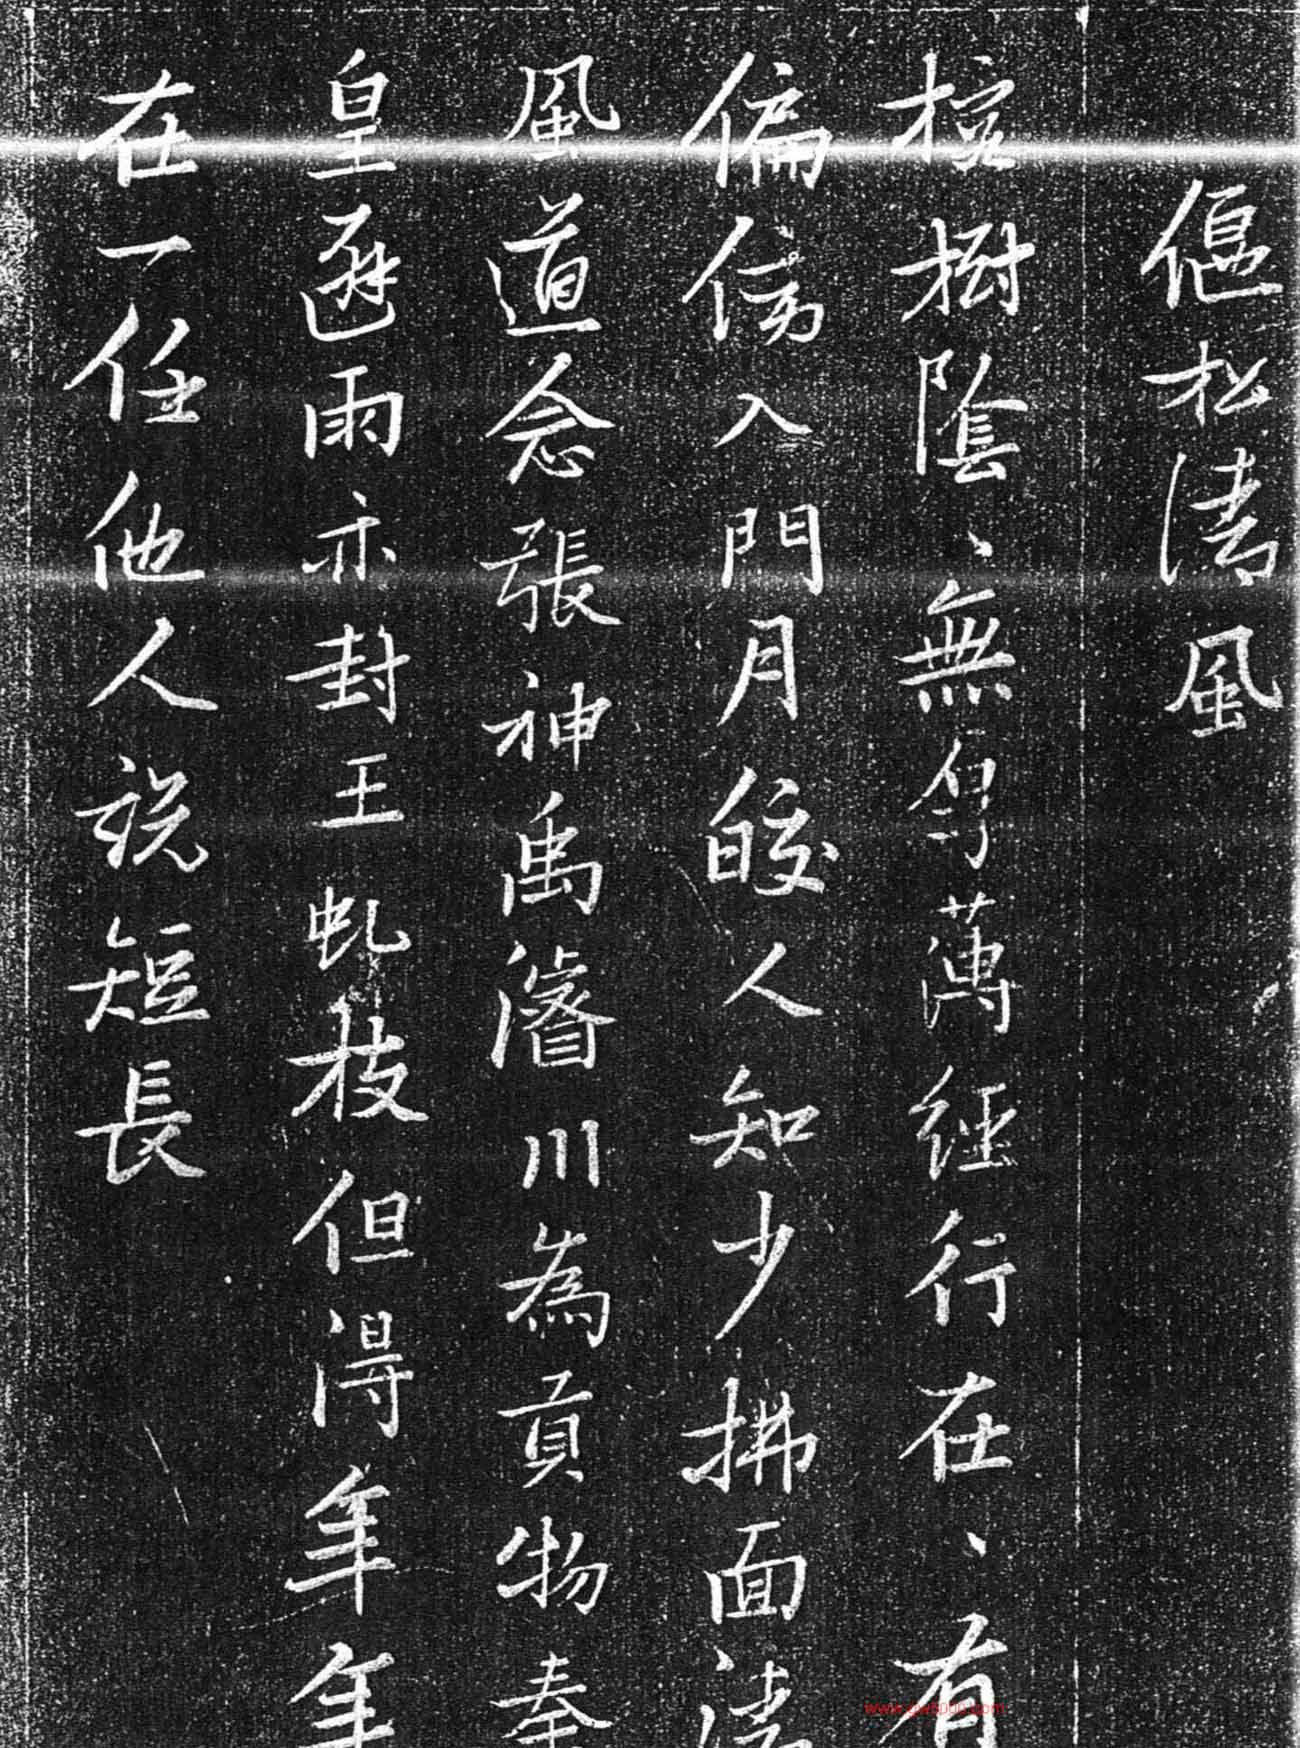 偃松清風
樹陰、無尋萬經行在、有
偏傍入門月皎人知少拂面清
風道念張神禹濬川為貢物秦
皇避雨亦封王虬枝但得年年
在一任他人說短長